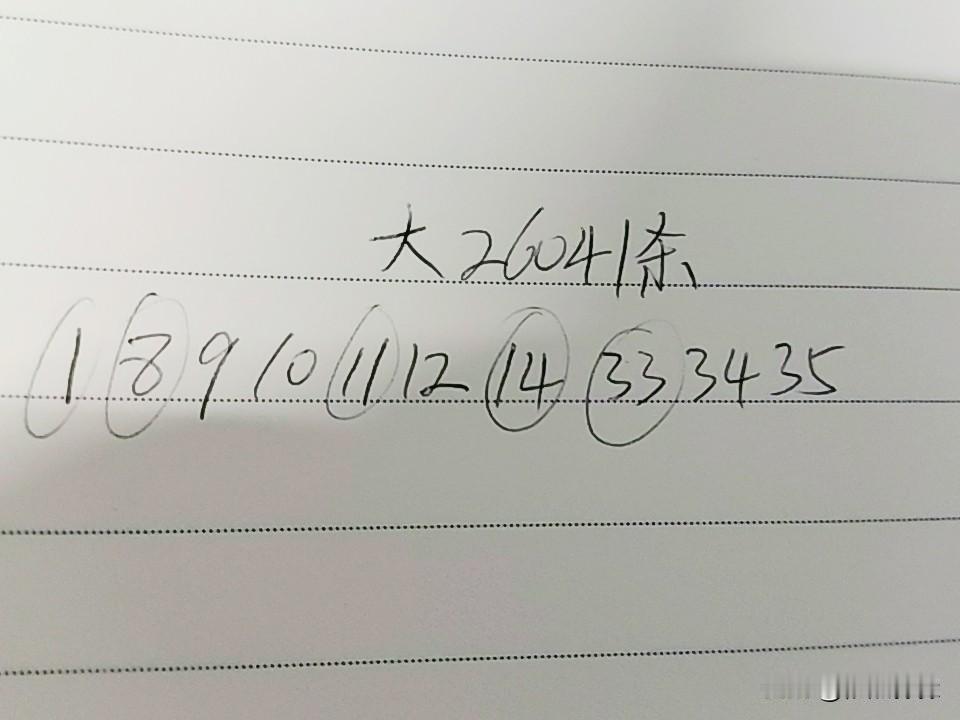 大26041杀
1 8 9 10 11 12 14 33 34 35